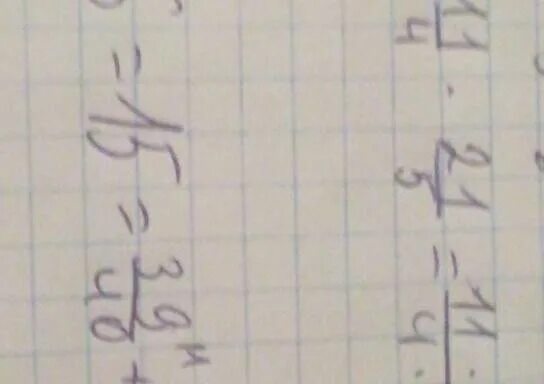 11/4 · 21/5 = 11·/4·
= 15 = 39/40 +